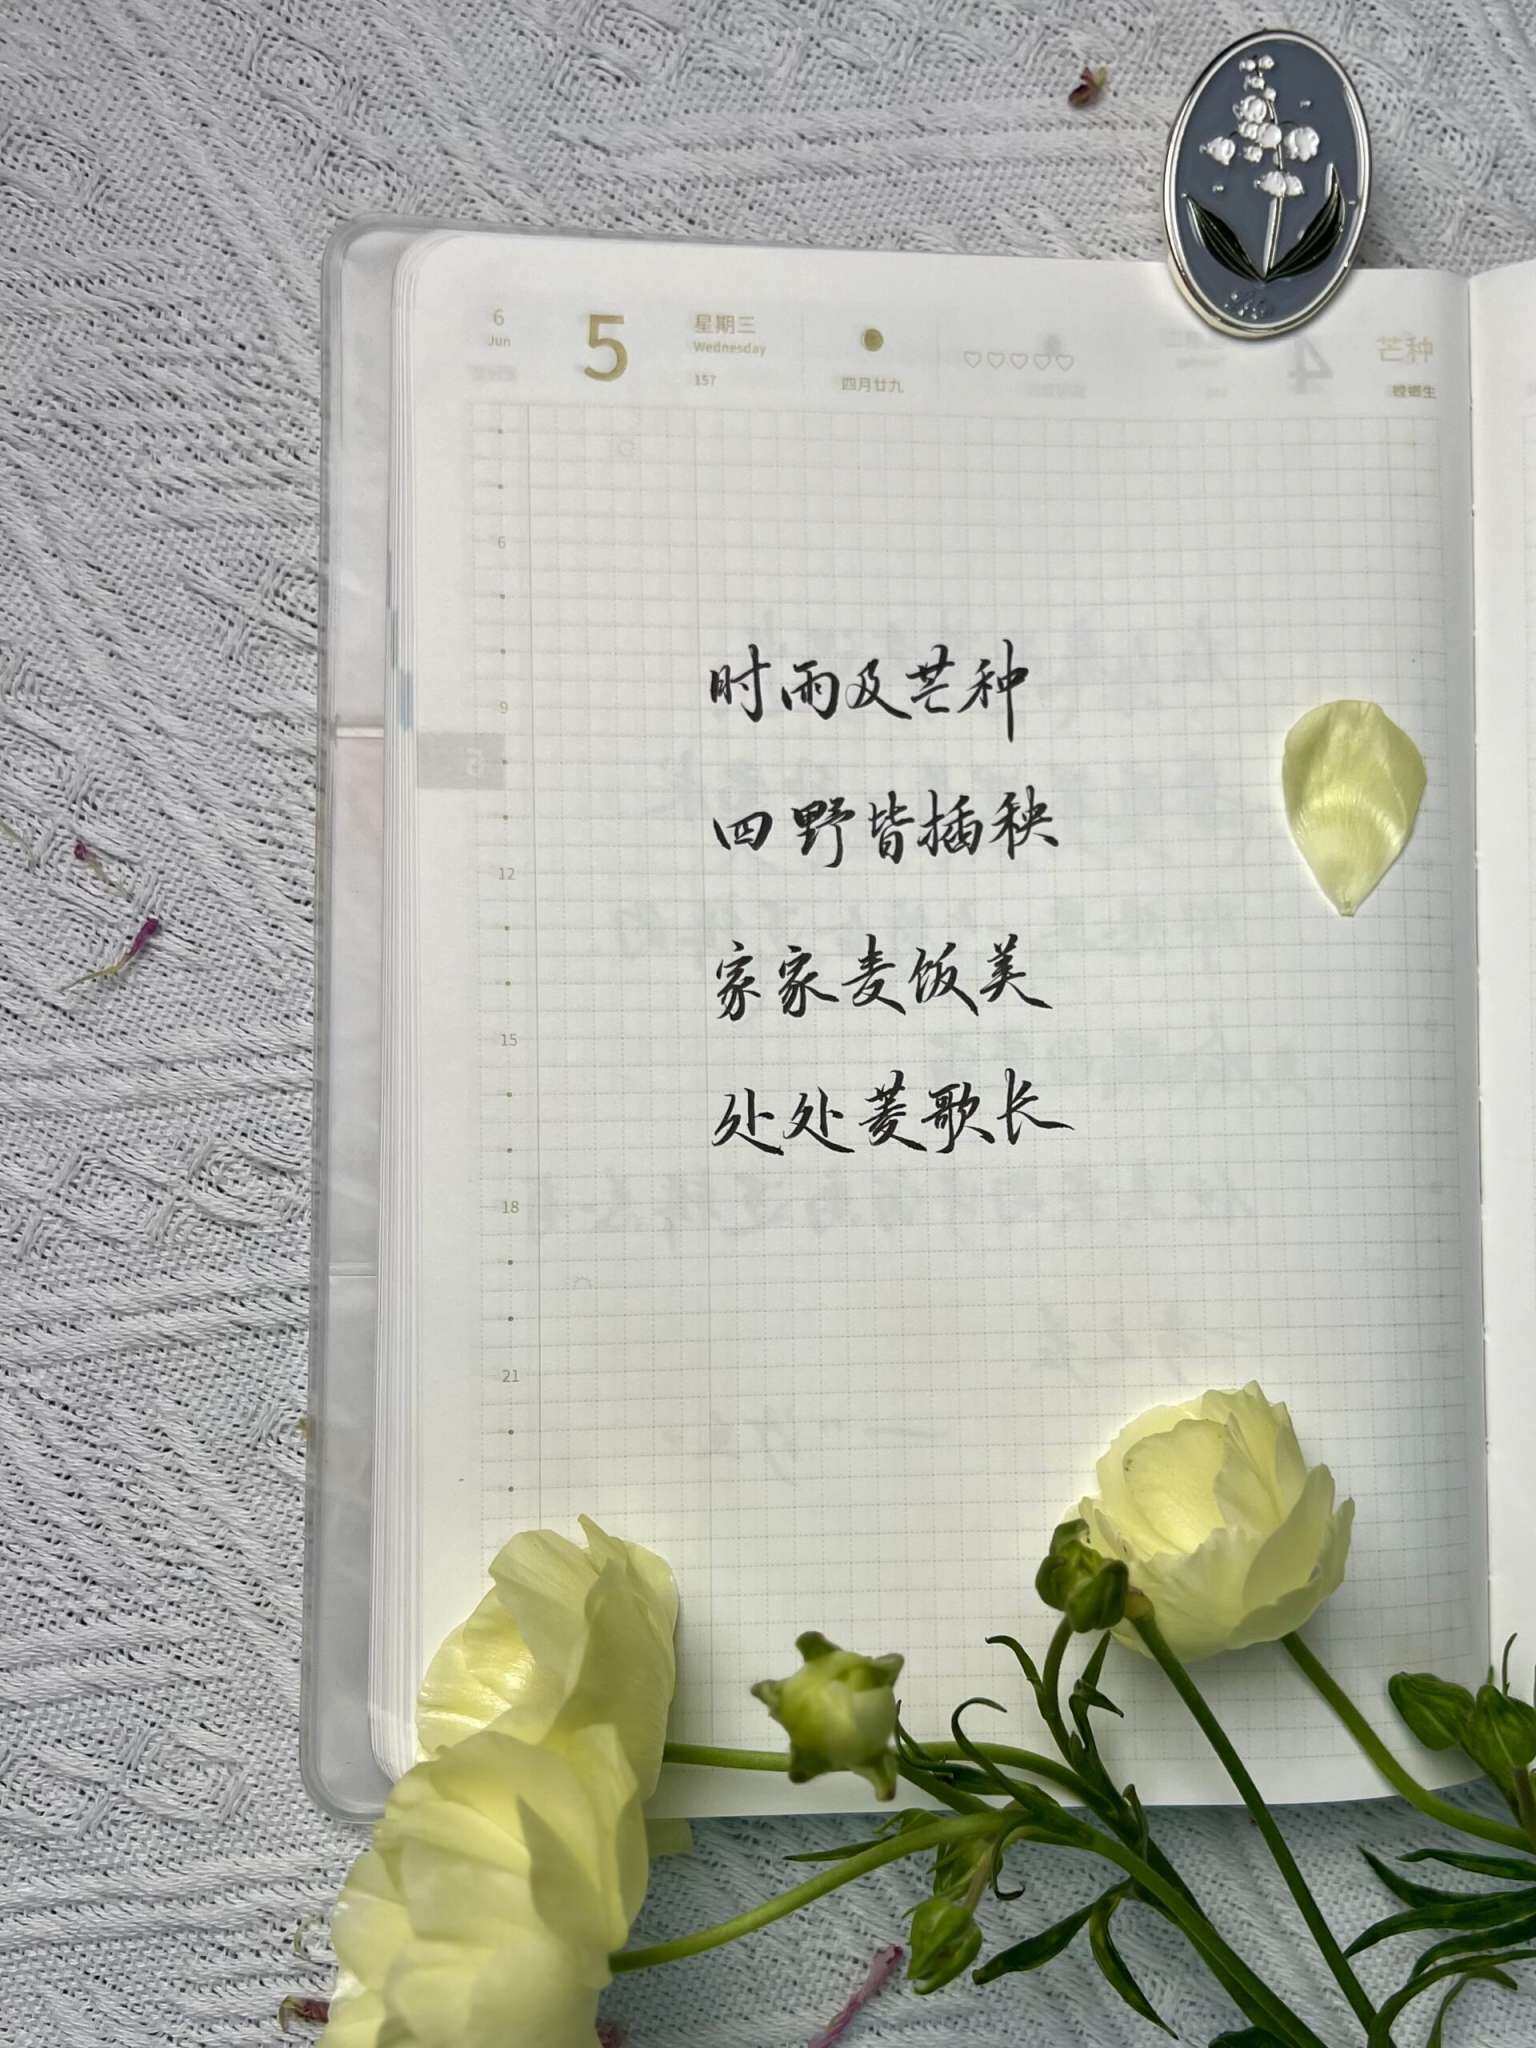 6
Jun
5
星期三
Wednesday
157
四月廿九
芒种
螳螂生
6
9
12
15
18
21
时雨及芒种
四野皆插秧
家家麦饭美
处处菱歌长